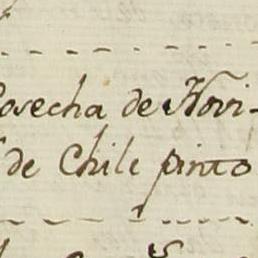 Cosecha de Novi-
de Chile pinto